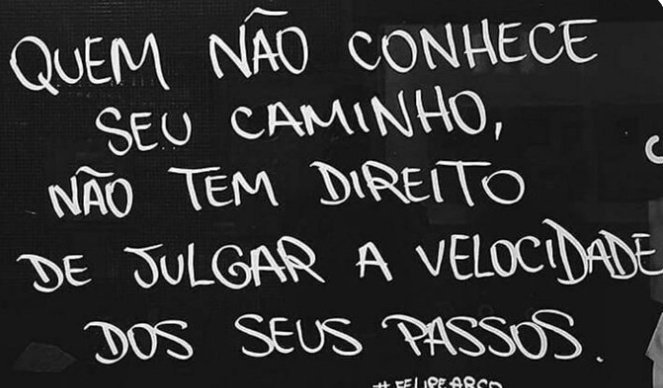 QUEM NÃO CONHECE
SEU CAMINHO,
NÃO TEM DIREITO
DE JULGAR A VELOCIDADE
DOS SEUS PASSOS.
# FELIPEARCO